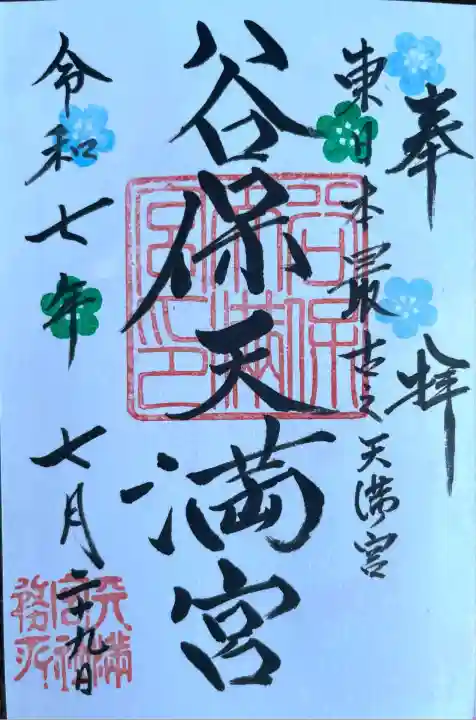 奉拝
東日本最古之天満宮
谷保天満宮
谷保天満宮印
令和七年七月二十九日
天満宮社務所